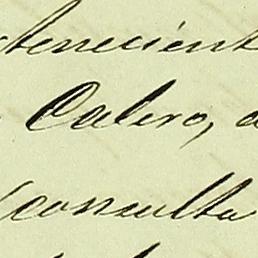 tenecient
Calero, a
consulta